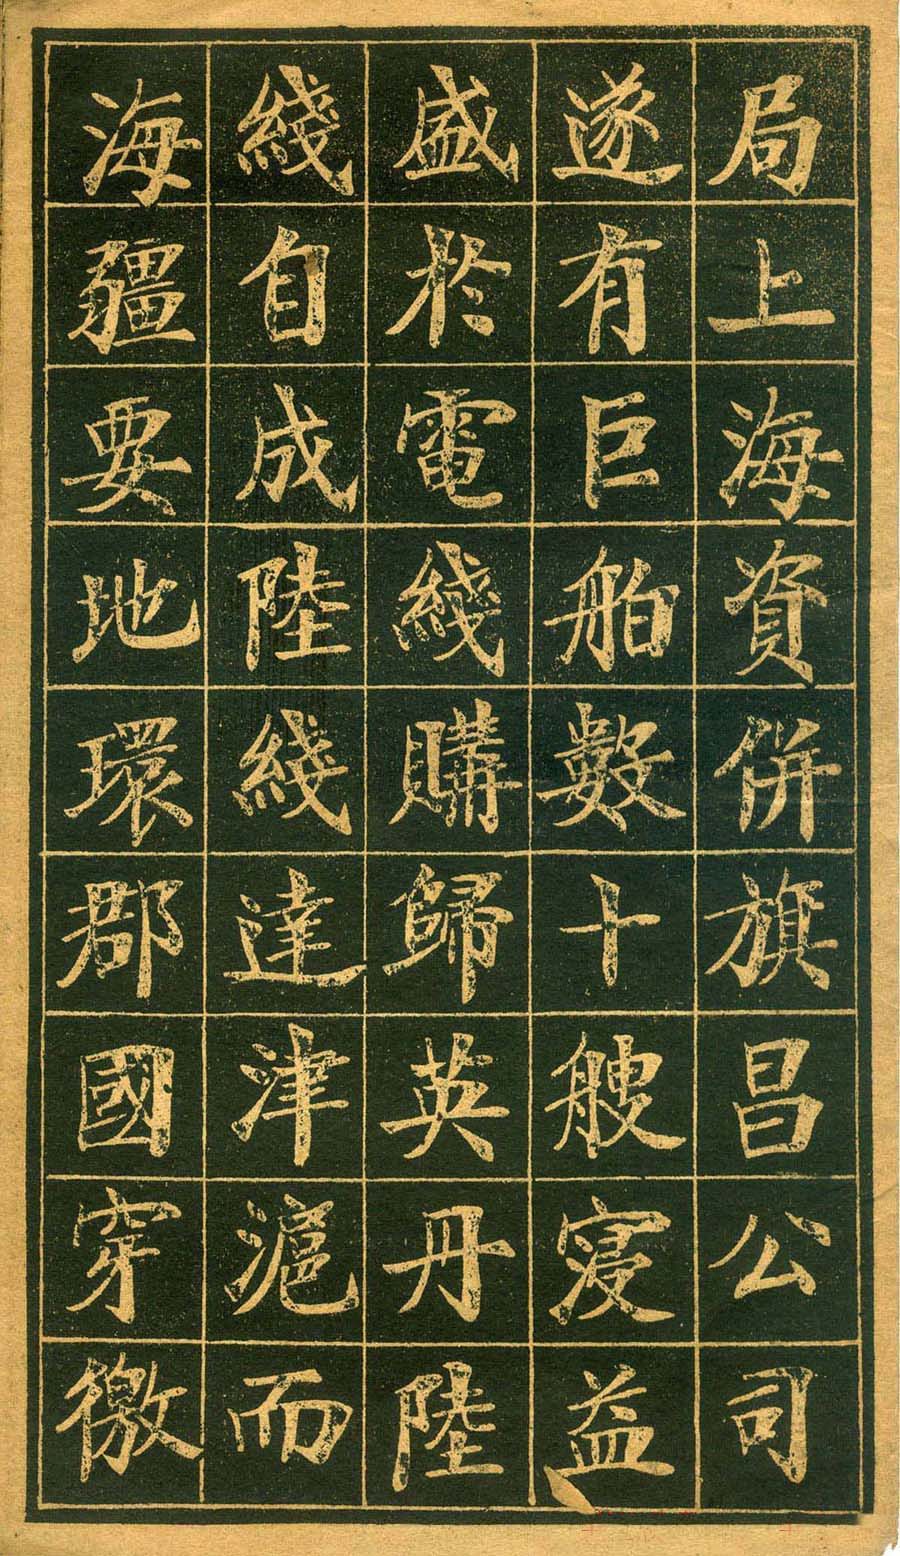 局上海資併旗昌公司
遂有巨舶數十艘寖益
盛於電綫購歸英丹陸
綫自成陸綫達津滬而
海疆要地環郡國穿徼